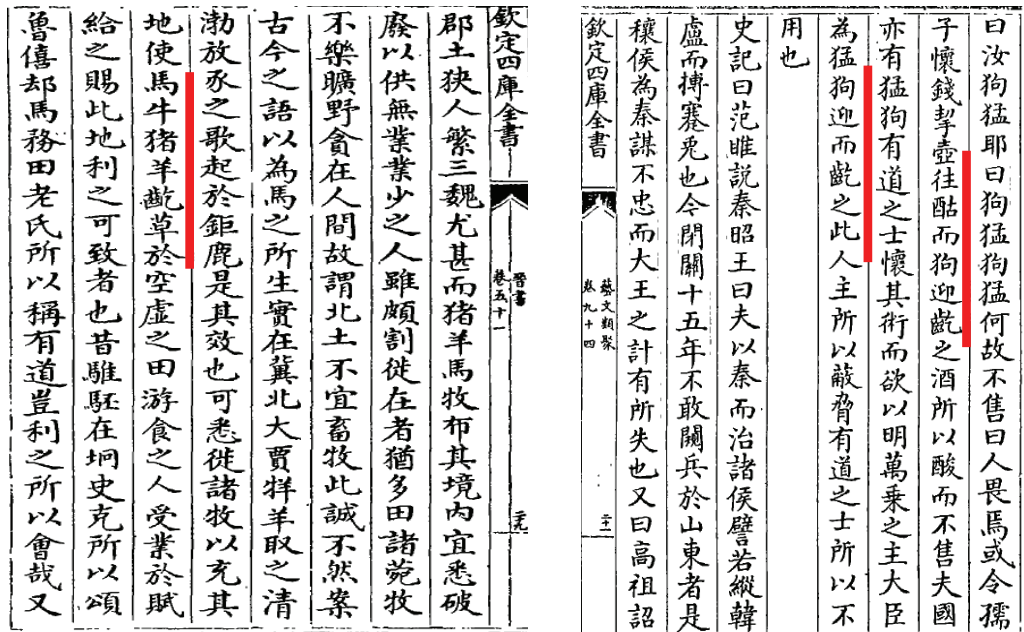 曰汝狗猛耶曰狗猛狗猛何故不售曰人畏焉或令孺
子懷錢挈壺往酤而狗迎齕之酒所以酸而不售夫國
亦有猛狗有道之士懷其術而欲以明萬乘之主大臣
為猛狗迎而齕之此人主所以蔽脅有道之士所以不
用也
史記曰范雎説秦昭王曰夫以秦而治諸侯譬若縱韓
盧而搏蹇兎也今閉關十五年不敢闚兵於山東者是
穰侯為秦謀不忠而大王之計有所失也又曰高祖詔
欽定四庫全書
藝文類聚
卷九十四
欽定四庫全書
晉書
卷五十一
郡土狹人繁三魏尤甚而猪羊馬牧布其境内宜悉破
廢以供無業業少之人雖頗割徙在者猶多田諸菀牧
不樂曠野貪在人間故謂北土不宜畜牧此誠不然案
古今之語以為馬之所生實在冀北大賈牂羊取之清
渤放豕之歌起於鉅鹿是其效也可悉徙諸牧以充其
地使馬牛猪羊齕草於空虛之田游食之人受業於賦
給之賜此地利之可致者也昔騅駓在坰史克所以頌
魯僖却馬務田老氏所以稱有道豈利之所以會哉又